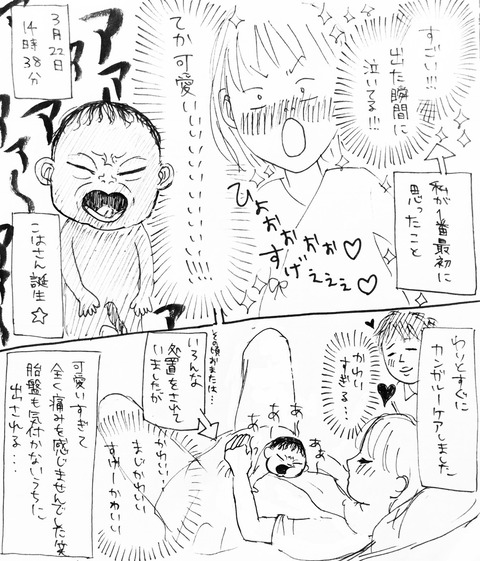 すごい!!!
出た瞬間に
泣いてる!!!
私が1番最初に
思ったこと
ひょおおおお♡
すげえええ♡
てか可愛いいいいいいいいい!!!
3月22日
14時38分
アアアアアア〜
こはさん誕生☆
わりとすぐに
カンガルーケアしました
かわい
すぎる…
あぁ
あ
あ
あ
あ
その頃おまたは…
いろんな
処置をされて
いましたが
かわいい
まじかわいい
すげーかわいい
可愛いすぎて
全く痛みを感じませんでした笑
胎盤も気付かないうちに
出される…